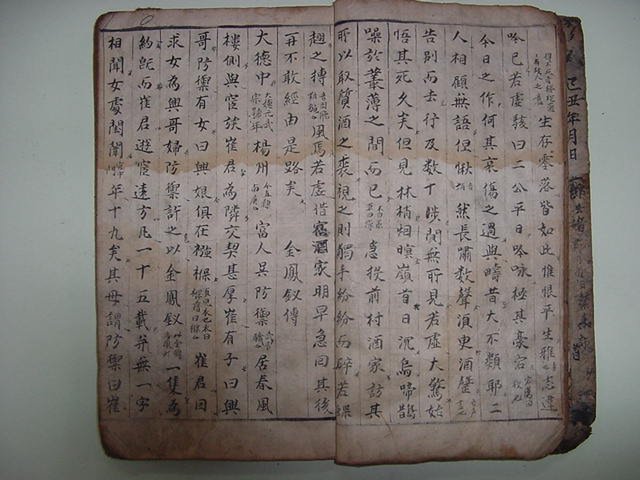 己丑年月日
生存零落皆如此惟恨平生雅志違
吟已若虛駭曰二公平日吟咏極其豪宕
今日之作何其哀傷之過與疇昔大不類耶二
人相顧無語但愀然長嘯数聲湏臾酒罄
告別而去行及数十步閴無所見若虛大驚始
悟其死久矣但見林梢烟暝嶺首日沉烏啼鵲
噪於叢薄之間而已急投前村酒家訪其
所以取質酒之裘視之則觸手紛紛而碎若蝶
翅之摶風焉若虛借宿酒家明早急回其後
再不敢經由是路矣 金鳳釵傳
大德中楊州富人吳防禦居春風
樓側與宦族崔君為隣交契甚厚崔有子曰興
哥防禦有女曰興娘俱在襁褓崔君因
求女為興哥婦防禦許之以金鳳釵一隻為
約旣而崔君遊宦遠方凡一十五載並無一字
相聞女處閨闈年十九矣其母謂防禦曰崔